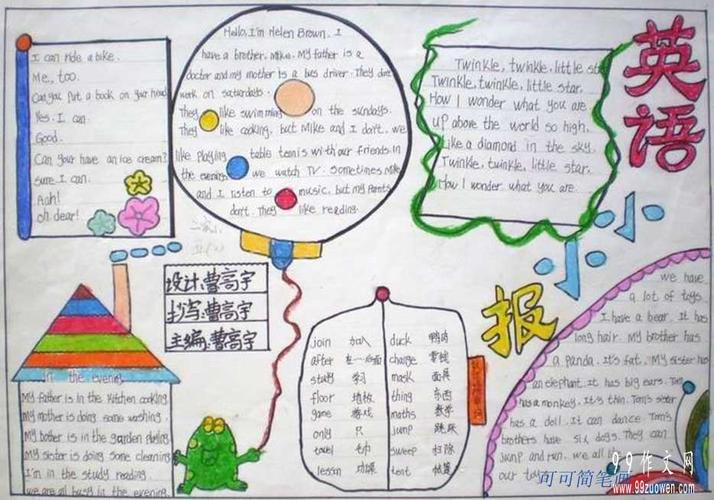 I can ride a bike.
Me, too.
Can you put a book on your head
Yes. I can.
Good.
Can you have an ice cream?
sure. I can.
Aah!
oh dear!
Hello, I'm Helen Brown. I
have a brother, Mike. My father is a
doctor and my mother is a bus driver. They don't
work on saturdays.
They like swimming on the sundays.
They like cooking, but Mike and I don't. we
like playing table tennis with our friends. In
the evening we watch TV. Sometimes Mike
and I listen to music, but my parents
don't. They like reading.
Twinkle, twinkle, little star
Twinkle, twinkle, little star.
How I wonder what you are
up above the world so high.
Like a diamond in the sky.
Twinkle, twinkle, little star.
How I wonder what you are.
英语
小小
报
设计:曹高宇
抄写:曹高宇
主编:曹高宇
In the evening
My father is in the kitchen cooking
My mother is doing some washing.
My brother is in the garden
My sister is doing some cleaning
I'm in the study reading
we are all busy in the evening.
join 加入 duck 鸭肉
after 在…后面 change 零钱
study 学习 mask 面具
floor 地板 thing 东西
game 游戏 maths 数学
only 只 jump 跳跃
towel 毛巾 sweep 扫除
lesson 功课 tent 帐篷
we have
a lot of toys.
I have a bear. It has
long hair. My brother has
a panda. It's fat. My sister has
an elephant. It has big ears. Tom
has a monkey. It's thin. Tom's sister
has a doll. It can dance. Tom's
brothers have six dogs. They can
jump and run. we all
our toys
可可简笔画
99作文网
www.99zuowen.com